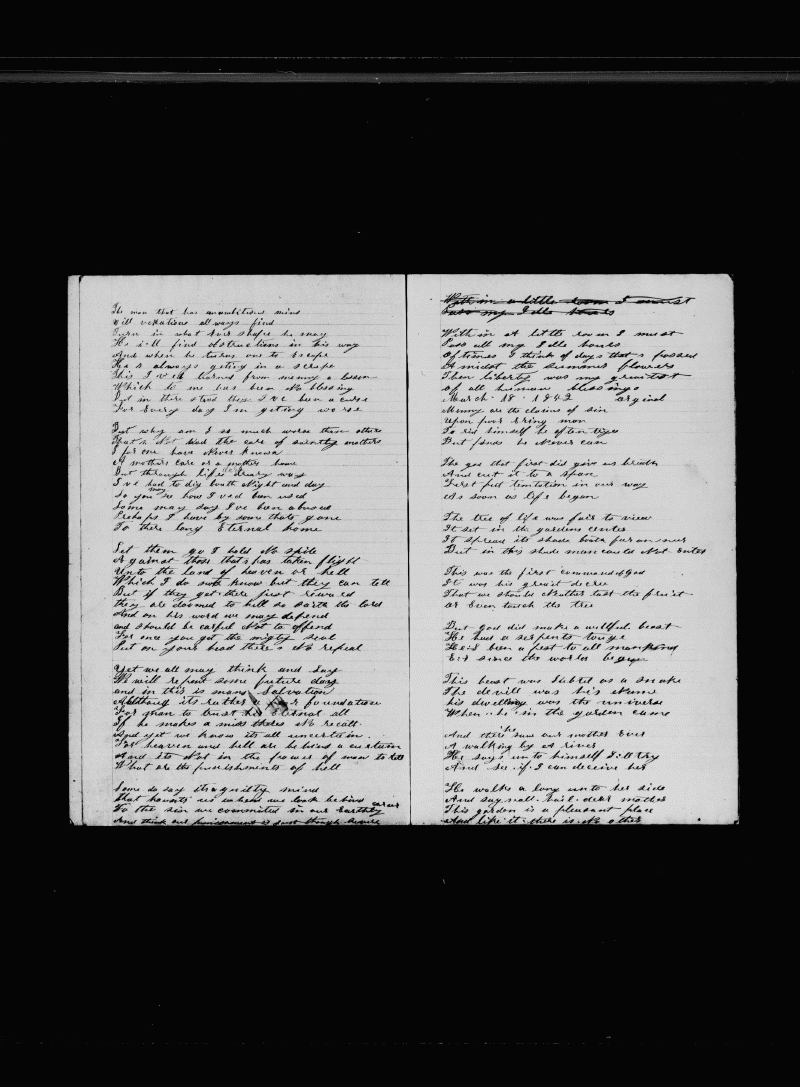 The man that has an ambitious mind
Will vexations allways find
Turn in what Ever shape he may
He will find obstructions in his way
And when he turns one to Escape
He is always geting in a scrape
This I've learned from menny a lesson
Which to me has been No blessing
But in there stead there I've been a curse
For Every day I'm geting worse
But why am I so much worse than others
That's Not had the care of saintly mothers
I for one have Never known
A mothers care or a mothers home
But through life's dreary way
I've had to dig both Night and day
So you may see how I ved been used
Some may say I've ben abused
Perhaps I have by some thats gone
To there long Eternal home
Let them go I hold No spite
Against those that's has taken flight
Unto the land of heaven or hell
Which I do not know but they can tell
But if they get there just reward
they are doomed to hell so saith the lord
And on his word we may depend
and should be carful Not to offend
For once you get the migty seal
Put on your head there's No repeal
Yet we all may think and say
We will repent some future day
and in this is mans Salvation
Although its rather a poor foundation
For man to trust his Eternal all
If he makes a miss theres No recall
And yet we know its all uncertain
For heaven and hell are behind a curtain
And its Not in the power of man to tell
What are the punishments of hell
Some do say its a guilty mind
that haunts us when we look behind
To the sin we commited in our Earthly career
And think our punishment is just though severe
With in a little room I must
Pass my Idle hours
With in A little room I must
Pass all my Idle hours
Oftimes I think of days that's passed
A midst the summer flowers
Then liberty was my greatest
Of all humane blessings
March 18 1842 orginal
Menny are the claims of sin
Upon poor Ering man
To rid himself he often trys
But finds he Never can
The god that first did give us breath
And cut it to a span
First put temtation in our way
As soon as life began
The tree of life was fair to view
It set in the gardens center
It spread its shade both far an near
But in this shade man could Not Enter
This was the first command of God
It was his great decree
That we should Neither tast the fruit
or Even touch the tree
But god did make a willful beast
He had a serpents tounge
He's been a pest to all mankind
Ever since the world begun
This beast was Subtel as a snake
The devill was his Name
his dwelling was the universe
When he in the garden came
And there he saw our mother Eve
A walking by A river
He says unto himself I'll try
And see if I can deceive her
He walks a long unto her side
And says all hail dear mother
This garden is a pleasant place
And like it there is No other